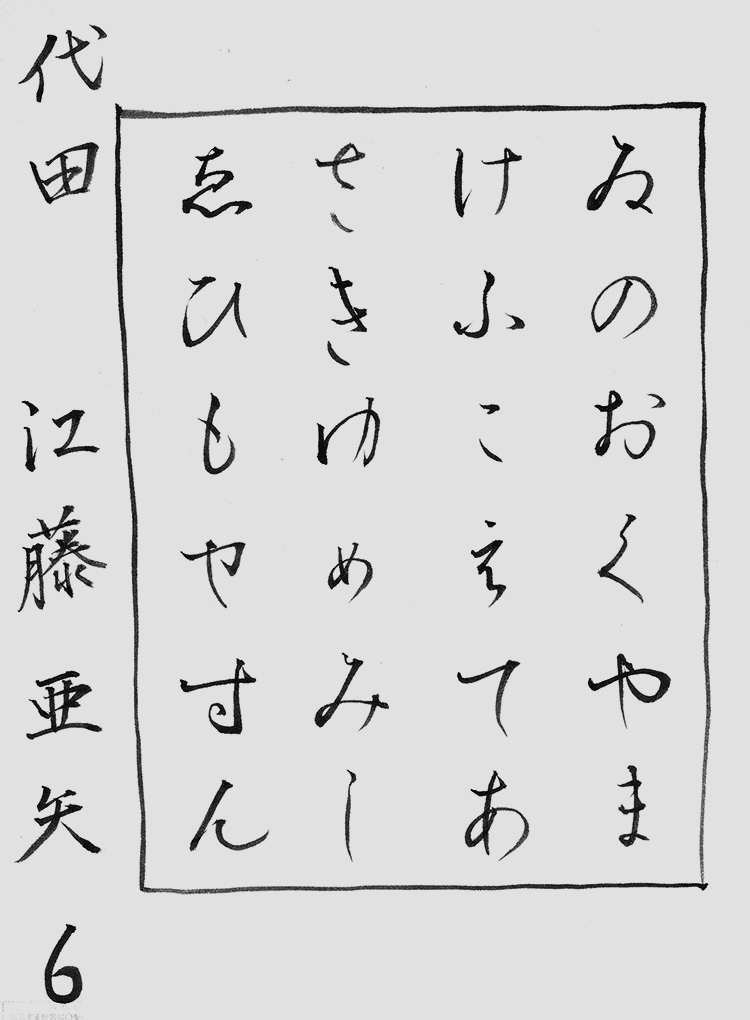 ゐのおくやま
けふこえてあ
さきゆめみし
ゑひもやすん
代田 江藤亜矢 6